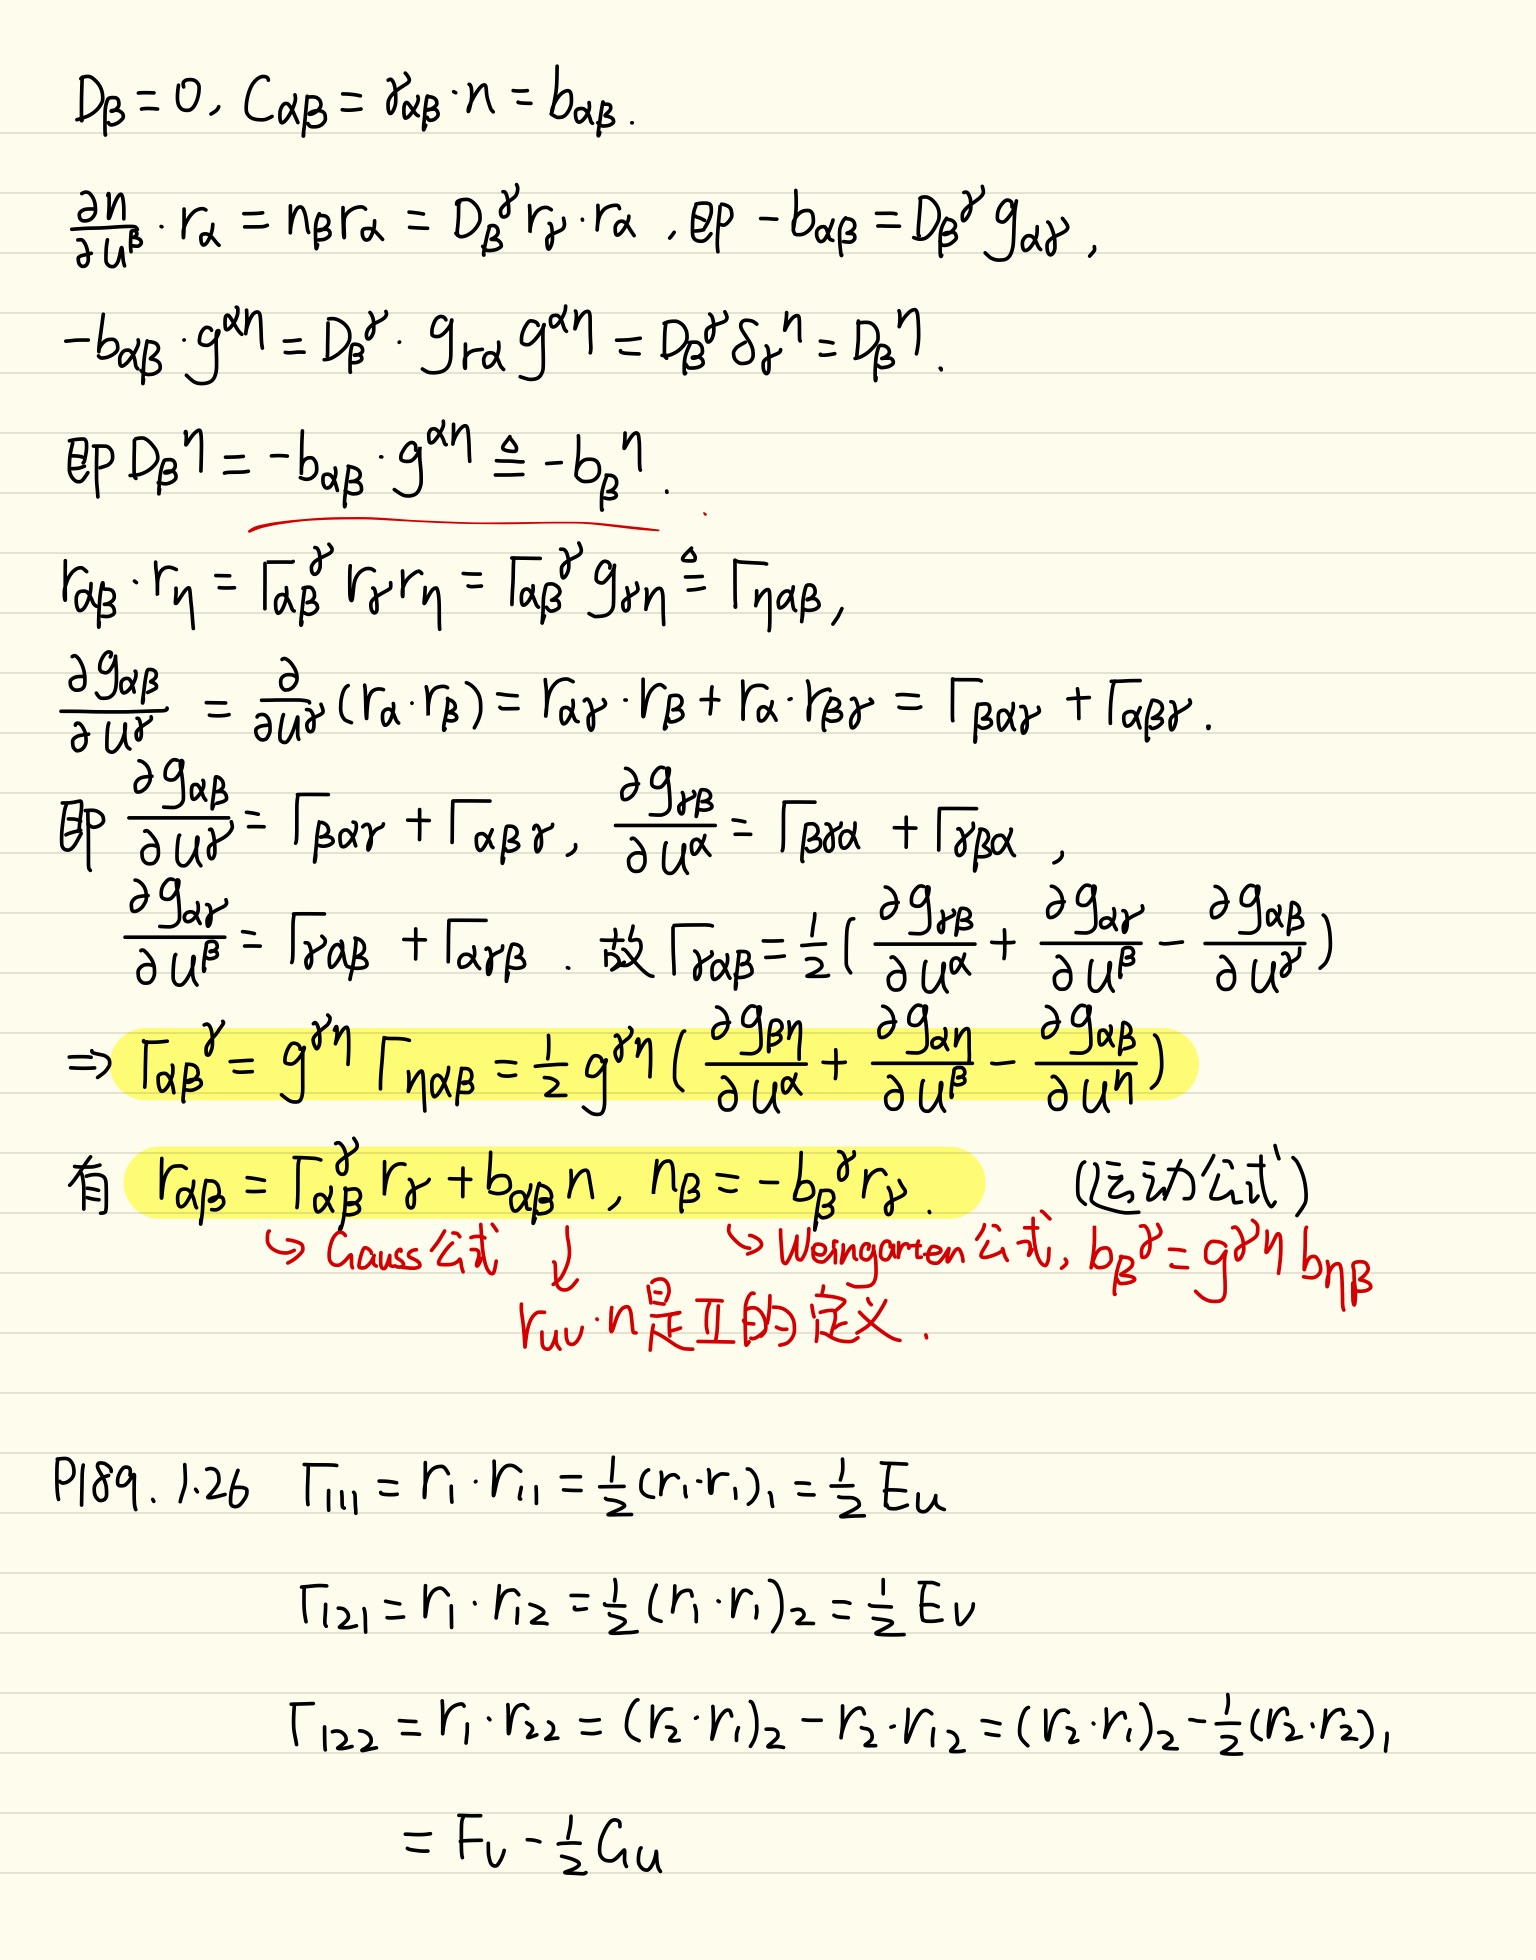 D_β = 0, C_{αβ} = γ_{αβ}·n = b_{αβ}.
∂n/∂u^β · r_α = n_β r_α = D_β^γ r_γ·r_α, 即 -b_{αβ} = D_β^γ g_{αγ},
-b_{αβ}·g^{αη} = D_β^γ · g_{rα} g^{αη} = D_β^γ δ_γ^η = D_β^η.
即 D_β^η = -b_{αβ}·g^{αη} ≜ -b_β^η.
r_{αβ}·r_η = Γ_{αβ}^γ r_γ r_η = Γ_{αβ}^γ g_{γη} ≜ Γ_{ηαβ},
∂g_{αβ}/∂u^γ = ∂/∂u^γ (r_α·r_β) = r_{αγ}·r_β + r_α·r_{βγ} = Γ_{βαγ} + Γ_{αβγ}.
即 ∂g_{αβ}/∂u^γ = Γ_{βαγ} + Γ_{αβγ}, ∂g_{γβ}/∂u^α = Γ_{βγα} + Γ_{γβα},
∂g_{αγ}/∂u^β = Γ_{γαβ} + Γ_{αγβ}. 故 Γ_{γαβ} = 1/2 (∂g_{γβ}/∂u^α + ∂g_{αγ}/∂u^β - ∂g_{αβ}/∂u^γ)
⇒ Γ_{αβ}^γ = g^{γη} Γ_{ηαβ} = 1/2 g^{γη} (∂g_{βη}/∂u^α + ∂g_{αη}/∂u^β - ∂g_{αβ}/∂u^η)
有 r_{αβ} = Γ_{αβ}^γ r_γ + b_{αβ} n, n_β = -b_β^γ r_γ. (运动公式)
↪ Gauss公式 ↓ ↪ Weingarten公式, b_β^γ = g^{γη} b_{ηβ}
r_{uv}·n是Ⅱ的定义.
P189. 1.26 Γ_{111} = r_1·r_{11} = 1/2 (r_1·r_1)_1 = 1/2 E_u
Γ_{121} = r_1·r_{12} = 1/2 (r_1·r_1)_2 = 1/2 E_v
Γ_{122} = r_1·r_{22} = (r_2·r_1)_2 - r_2·r_{12} = (r_2·r_1)_2 - 1/2 (r_2·r_2)_1
= F_v - 1/2 G_u